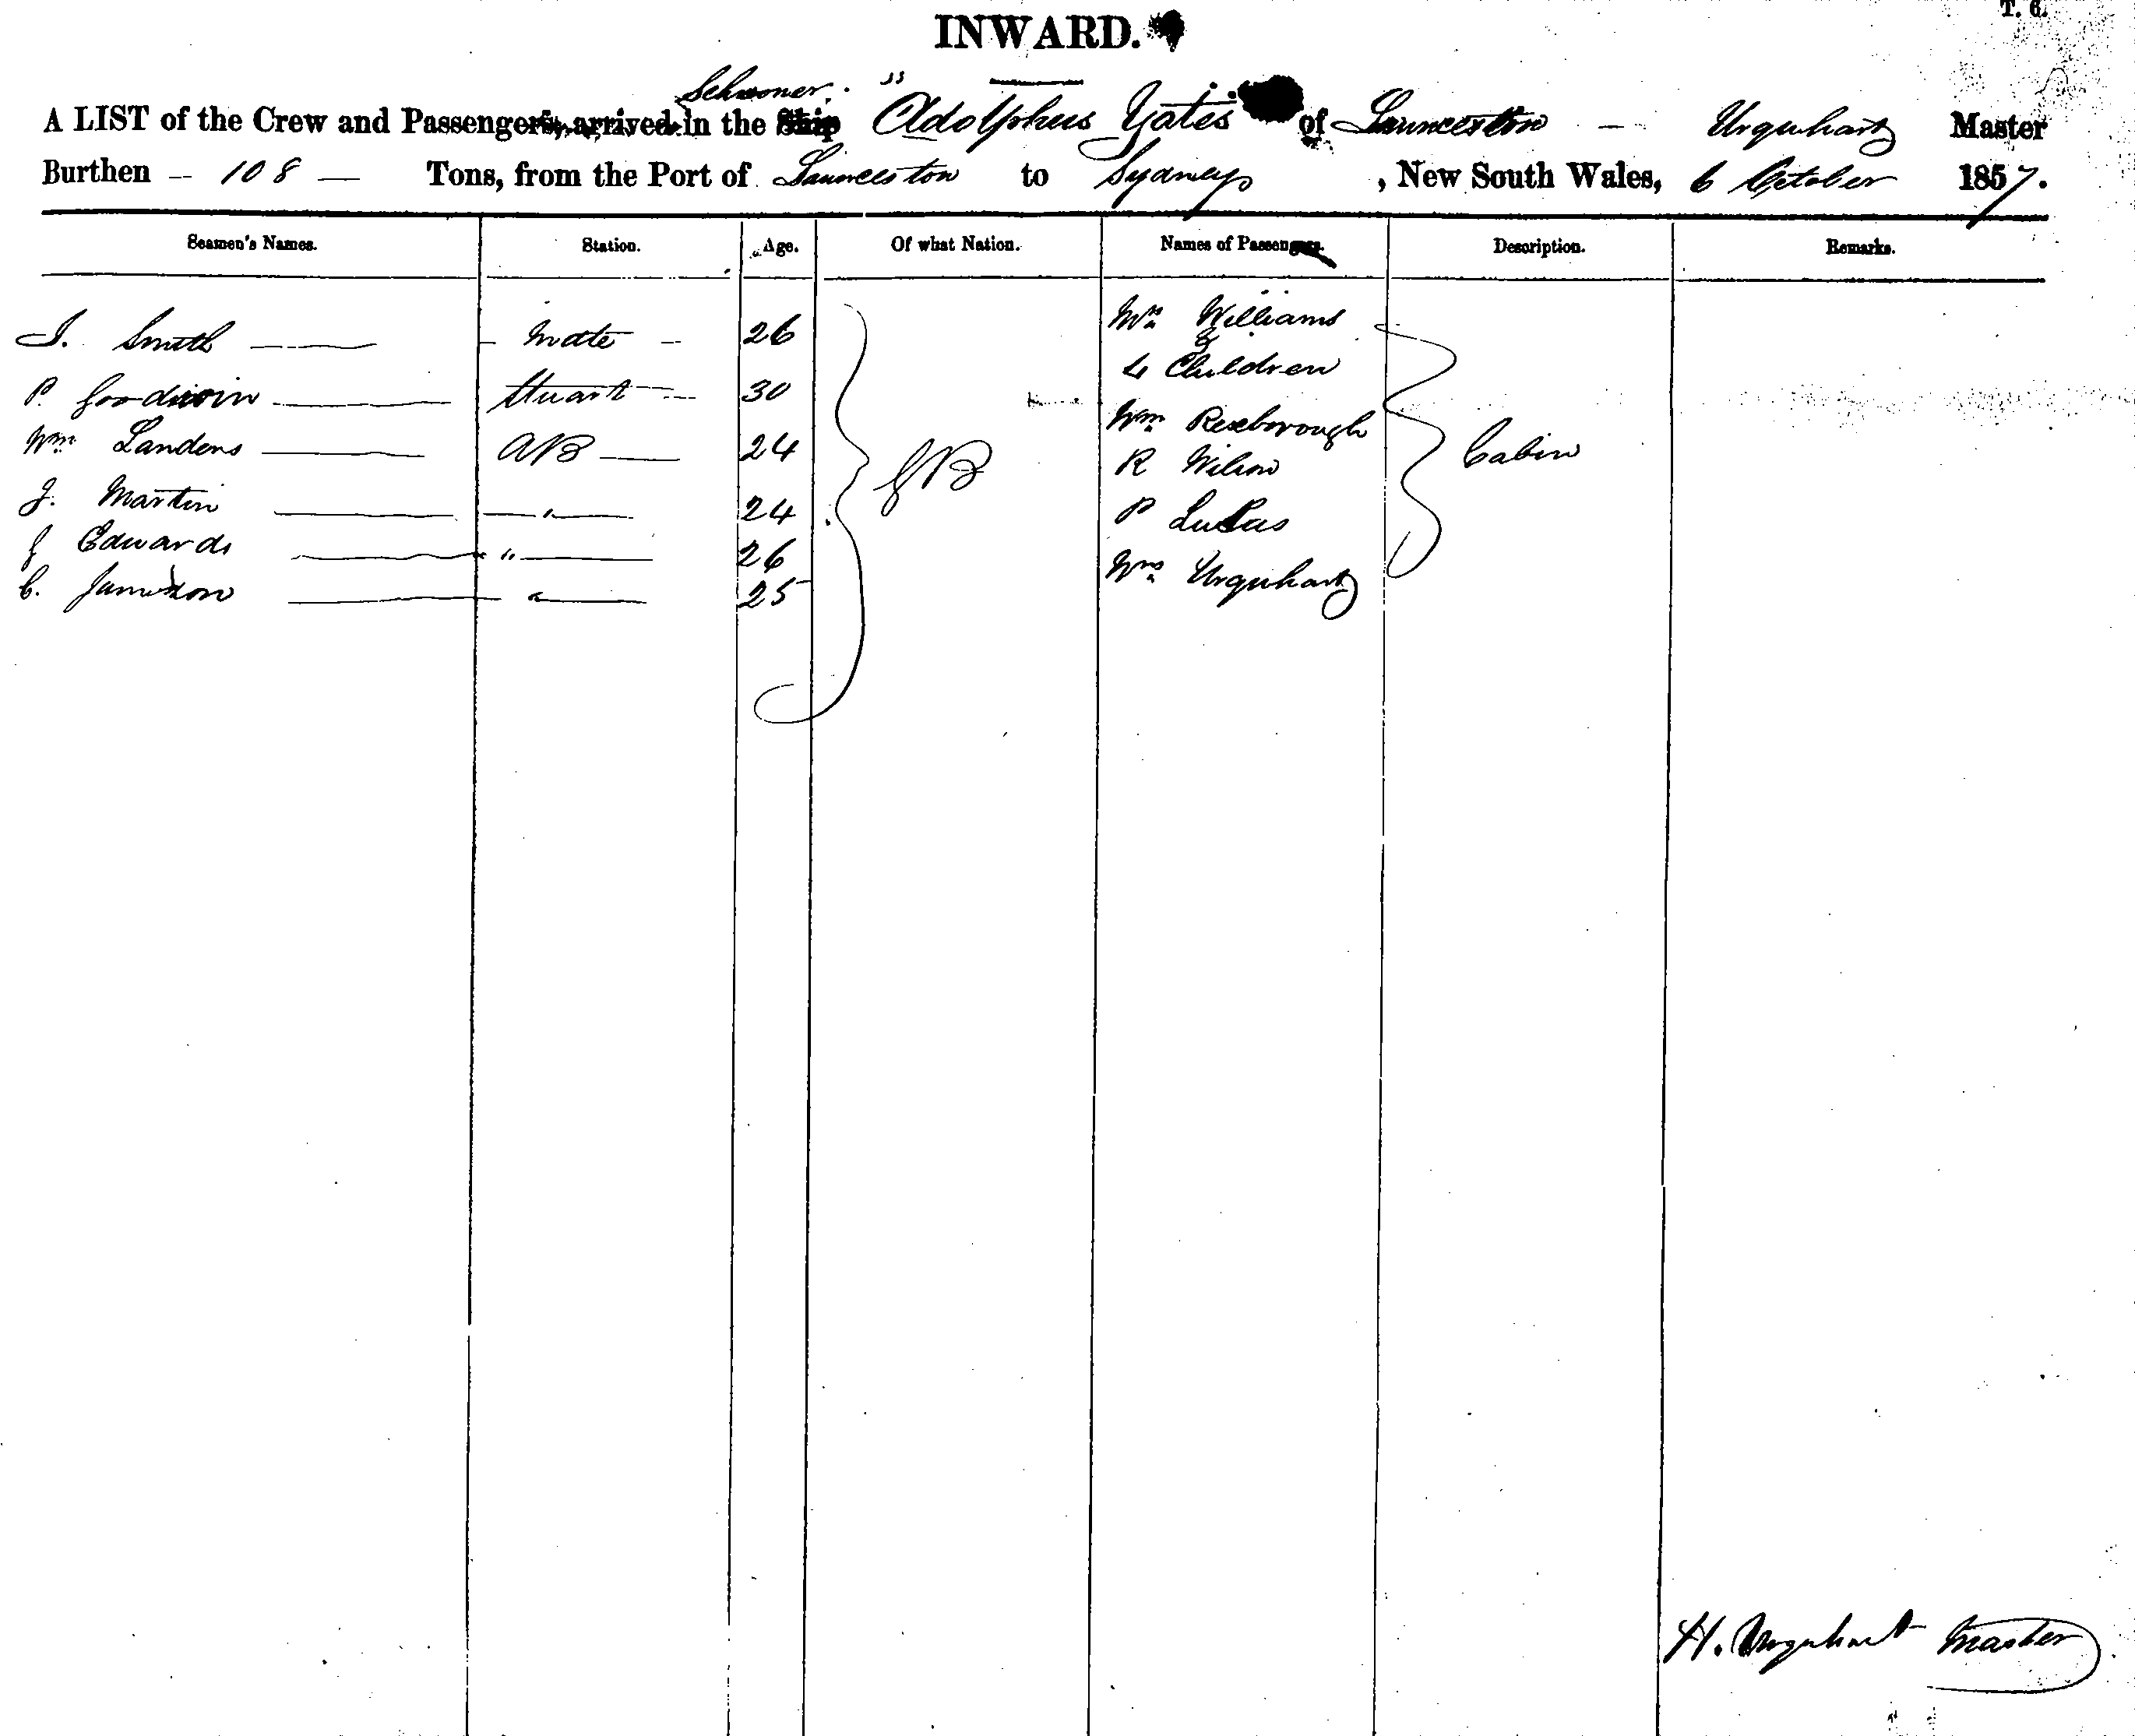 T. 6.
INWARD.
Schooner
A LIST of the Crew and Passengers, arrived in the Ship Adolphus Yates of Launceston — Urquhart Master
Burthen — 108 — Tons, from the Port of Launceston to Sydney, New South Wales, 6 October 1857.
Seamen's Names. Station. Age. Of what Nation. Names of Passengers. Description. Remarks.
J. Smith — Mate — 26 Mrs Williams
&
4 Children
P. Goodwin — Stuart — 30
Wm Landens — AB — 24 GB Wm Roxborough Cabin
R Wilson
J. Martin — " — 24 P Lucas
J Edwards — " — 26 Mrs Urquhart
C. Jamison — " — 25
H. Urquhart Master